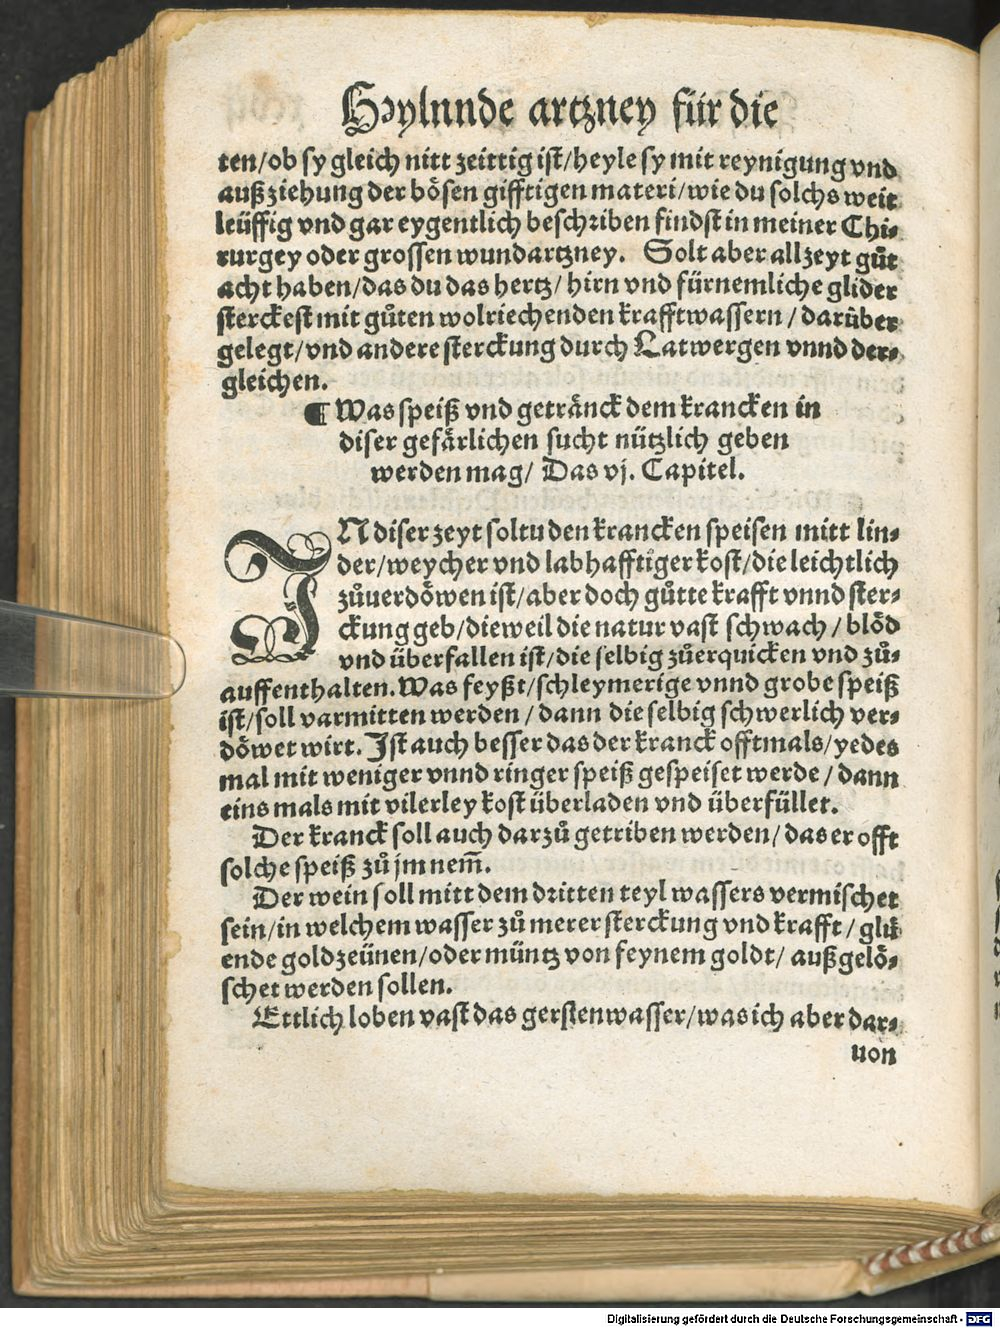 Heylunde artzney für die
ten/ob sy gleich nitt zeittig ist/heyle sy mit reynigung vnd
außziehung der bösen gifftigen materi/wie du solchs weit
leüffig vnd gar eygentlich beschriben findst in meiner Chi⸗
rurgey oder grossen wundartzney. Solt aber allzeyt gůt
acht haben/das du das hertz/hirn vnd fürnemliche glider
sterckest mit gůten wolriechenden krafftwassern/darüber
gelegt/vnd andere sterckung durch Latwergen vnnd der⸗
gleichen.
¶ Was speiß vnd getränck dem krancken in
diser gefärlichen sucht nützlich geben
werden mag/ Das vj. Capitel.
IN diser zeyt soltu den krancken speisen mitt lin⸗
der/weycher vnd labhafftiger kost/die leichtlich
zůuerdöwen ist/aber doch gůtte krafft vnnd ster⸗
ckung geb/dieweil die natur vast schwach/blöd
vnd überfallen ist/die selbig zůerquicken vnd zů⸗
auffenthalten. Was feyßt/schleymerige vnnd grobe speiß
ist/soll varmitten werden/dann die selbig schwerlich ver⸗
döwet wirt. Ist auch besser das der kranck offtmals/yedes
mal mit weniger vnnd ringer speiß gespeiset werde/dann
eins mals mit vilerley kost überladen vnd überfüllet.
Der kranck soll auch darzů getriben werden/das er offt
solche speiß zů jm nem̃.
Der wein soll mitt dem dritten teyl wassers vermischet
sein/in welchem wasser zů merer sterckung vnd krafft/glü
ende goldzeünen/oder müntz von feynem goldt/ außgelö⸗
schet werden sollen.
Ettlich loben vast das gerstenwasser/was ich aber dar⸗
uon
Digitalisierung gefördert durch die Deutsche Forschungsgemeinschaft - DFG